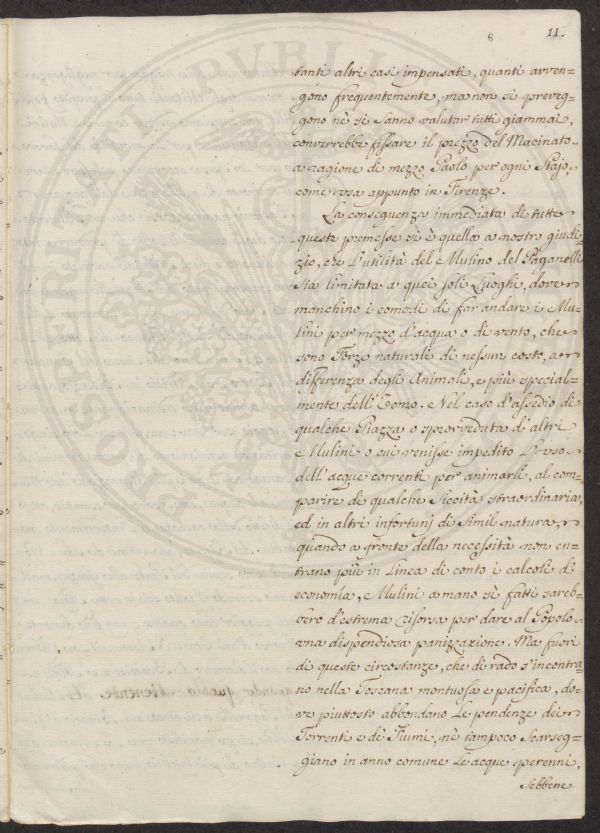 8 11.
tanti altri casi impensati, quanti avven=
gono frequentemente, ma non si preveg=
gono nè si sanno valutar tutti giammai,
converrebbe fissare il prezzo del Macinato
a ragione di mezzo Paolo per ogni Stajo,
come usa appunto in Firenze.
La conseguenza immediata di tutte
queste premesse si è quella a nostro giudi=
zio, che l'utilità del Mulino del Paganelli
sia limitata a quei soli Luoghi, dove
manchino i comodi di far andare i Mu=
lini per mezzo d'acqua o di vento, che
sono Forze naturali di nessun costo, a
differenza degli Animali, e più special=
mente dell'Uomo. Nel caso d'assedio di
qualche Piazza o sprovveduta di altri
Mulini o cui venisse impedito l'uso
dell'acque correnti per animarli, al com=
parire di qualche Siccità straordinaria,
ed in altri infortunj di simil natura,
quando a fronte della necessità non en=
trano più in linea di conto i calcoli di
economia, Mulini a mano sì fatti sareb=
bero d'estrema risorsa per dare al Popolo
una dispendiosa panizzazione. Ma fuori
di queste circostanze, che di rado s'incontra=
no nella Toscana montuosa e pacifica, do=
ve piuttosto abbondano le pendenze dei
Torrenti e di Fiumi, nè tampoco Scarseg=
giano in anno comune le acque perenni,
sebbene